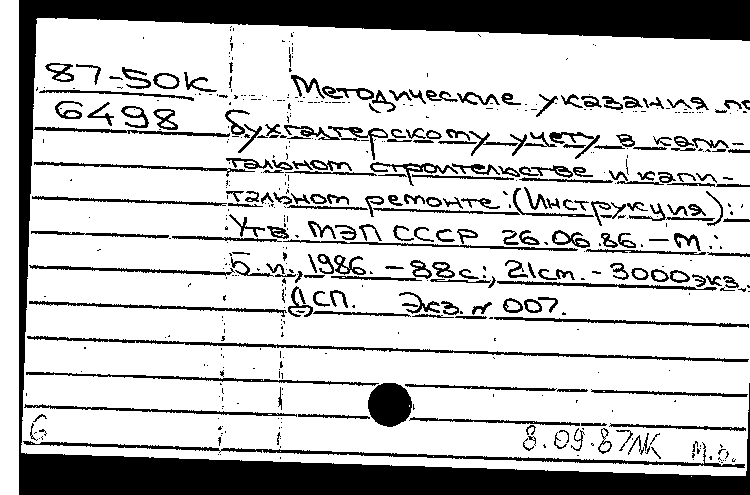 87-50К
6498
Методические указания по
бухгалтерскому учету в капи-
тальном строительстве и капи-
тальном ремонте: (Инструкция):
Утв. МЭП СССР 26.06.86. – М.:
Б.и., 1986. – 88с.; 21см. - 3000экз.
ДСП. Экз. № 007.
6
8.09.87
м.б.